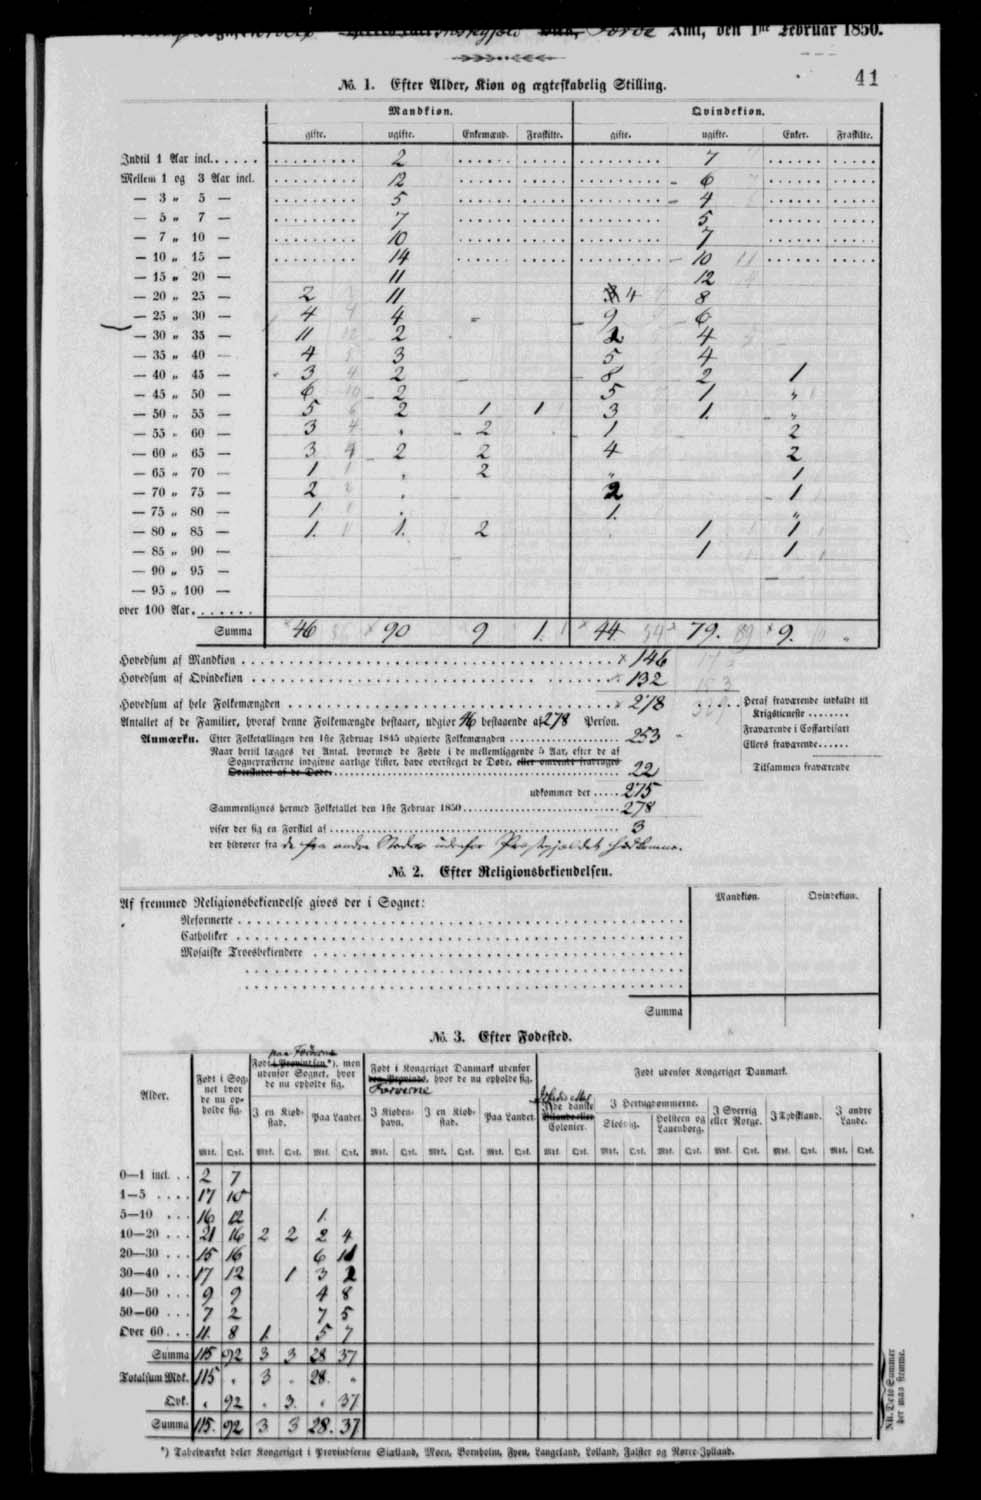 Amt, den 1ste Februar 1850.
41
No. 1. Efter Alder, Kion og ægteskabelig Stilling.
Mandkion. Qvindekion.
gifte. ugifte. Enkemænd. Fraskilte. gifte. ugifte. Enker. Fraskilte.
Indtil 1 Aar incl. 2 7
Mellem 1 og 3 Aar incl. 12 6
— 3 „ 5 — 5 4
— 5 „ 7 — 7 5
— 7 „ 10 — 10 7
— 10 „ 15 — 14 10
— 15 „ 20 — 11 12
— 20 „ 25 — 2 11 4 8
— 25 „ 30 — 4 4 - 9 6
— 30 „ 35 — 11 2 2 4
— 35 „ 40 — 4 3 5 4
— 40 „ 45 — 3 2 8 2 1
— 45 „ 50 — 6 2 5 1 „
— 50 „ 55 — 5 2 1 1 3 1. „
— 55 „ 60 — 3 . 2 1 2
— 60 „ 65 — 3 2 2 4 2
— 65 „ 70 — 1 . 2 „ 1
— 70 „ 75 — 2 . 2 1
— 75 „ 80 — 1 . 1. „
— 80 „ 85 — 1. 1. 2 1 1
— 85 „ 90 — 1 1
— 90 „ 95 —
— 95 „ 100 —
over 100 Aar.
Summa 46 90 9 1. 44 79. 9. „
Hovedsum af Mandkion 146
Hovedsum af Qvindekion 132
Hovedsum af hele Folkemængden 278
Deraf fraværende indkaldt til
Krigstieneste
Antallet af de Familier, hvoraf denne Folkemængde bestaaer, udgior 46 bestaaende af 278 Person.
Fraværende i Coffardifart
Anmærkn. Efter Folketællingen den 1ste Februar 1845 udgiorde Folkemængden 253
Ellers fraværende
Naar hertil lægges det Antal, hvormed de Fødte i de mellemliggende 5 Aar, efter de af
Sognepræsterne indgivne aarlige Lister, have oversteget de Døde, eller omvendt fradrages
Overskudet af de Døde 22
Tilsammen fraværende
udkommer der 275
Sammenlignes hermed Folketallet den 1ste Februar 1850 278
viser der sig en Forskiel af 3
der hidrører fra de fra andre Steder udenfor Præstegjældet
No. 2. Efter Religionsbekiendelsen.
Af fremmed Religionsbekiendelse gives der i Sognet: Mandkion. Qvindekion.
Reformerte
Catholiker
Mosaiske Troesbekiendere
Summa
No. 3. Efter Fødested.
Alder.
Født i Sognet hvor de nu opholde sig.
paa Færøerne
Født i Provindsen*), men udenfor Sognet, hvor de nu opholde sig.
I en Kiøbstad. Paa Landet.
Født i Kongeriget Danmark udenfor den Provinds, hvor de nu opholde sig.
Færøerne
I Kiøbenhavn. I en Kiøbstad. Paa Landet.
Født udenfor Kongeriget Danmark.
de danske Bilande eller Colonier.
I Hertugdommerne.
Slesvig. Holsteen og Lauenborg.
I Sverrig eller Norge. I Tydskland. I andre Lande.
Mdk. Qvk. Mdk. Qvk. Mdk. Qvk. Mdk. Qvk. Mdk. Qvk. Mdk. Qvk. Mdk. Qvk. Mdk. Qvk. Mdk. Qvk. Mdk. Qvk. Mdk. Qvk. Mdk. Qvk.
0—1 incl. 2 7
1—5 17 10
5—10 16 12 1.
10—20 21 16 2 2 2 4
20—30 15 16 6 11
30—40 17 12 1 3 2
40—50 9 9 4 8
50—60 7 2 7 5
Over 60 11. 8 1. 5 7
Summa 115 92 3 3 28 37
Totalsum Mdk. 115 „ 3 „ 28. „
Qvk. „ 92 „ 3. „ 37
Summa 115. 92 3 3 28. 37
NB. Deto Summer der maa stemme.
*) Tabelværket deler Kongeriget i Provindserne Siælland, Møen, Bornholm, Fyen, Langeland, Lolland, Falster og Nørre-Jylland.